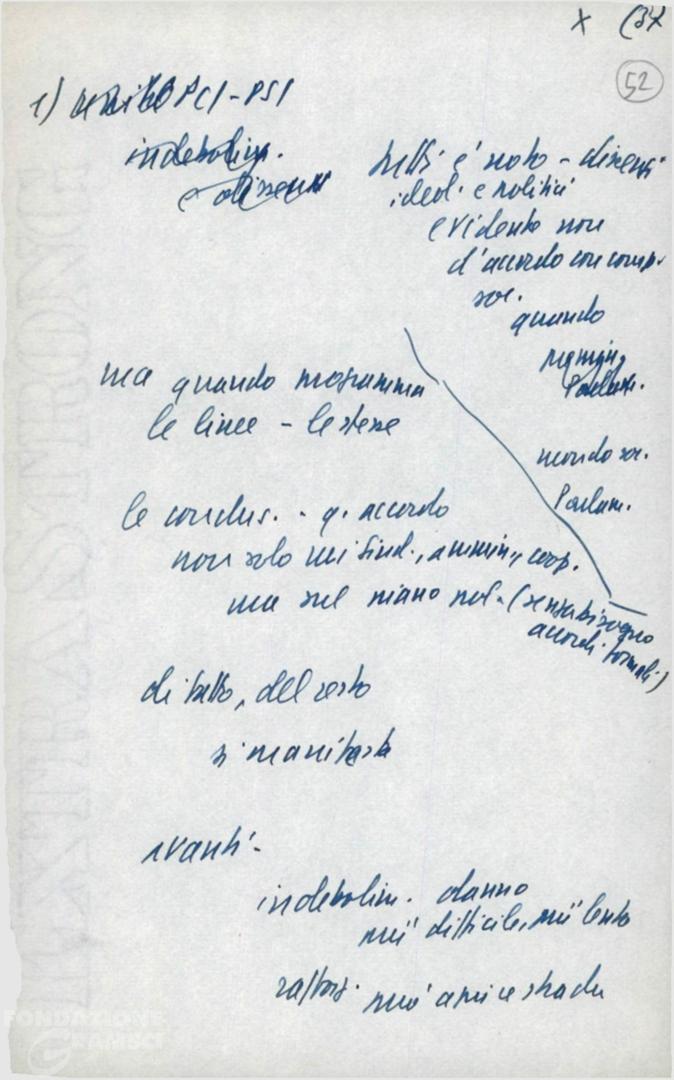 X (37
52
1) PCI-PSI
indebolim.
e dissensi
tutto è noto - dissensi
ideol. e politici
evidente non
d'accordo con comp.
soc.
quando
Parlam.
ma quando programma
le linee - le stesse
mondo soc.
Parlam.
le conclus. - q. accordo
non solo nei sind., ammin., coop.
ma sul piano pol. (senza bisogno
accordi formali)
di fatto, del resto
si manifesta
avanti -
indebolim. danno
più difficile, più lento
rafforz. può aprire strada
FONDAZIONE
GRAMSCI